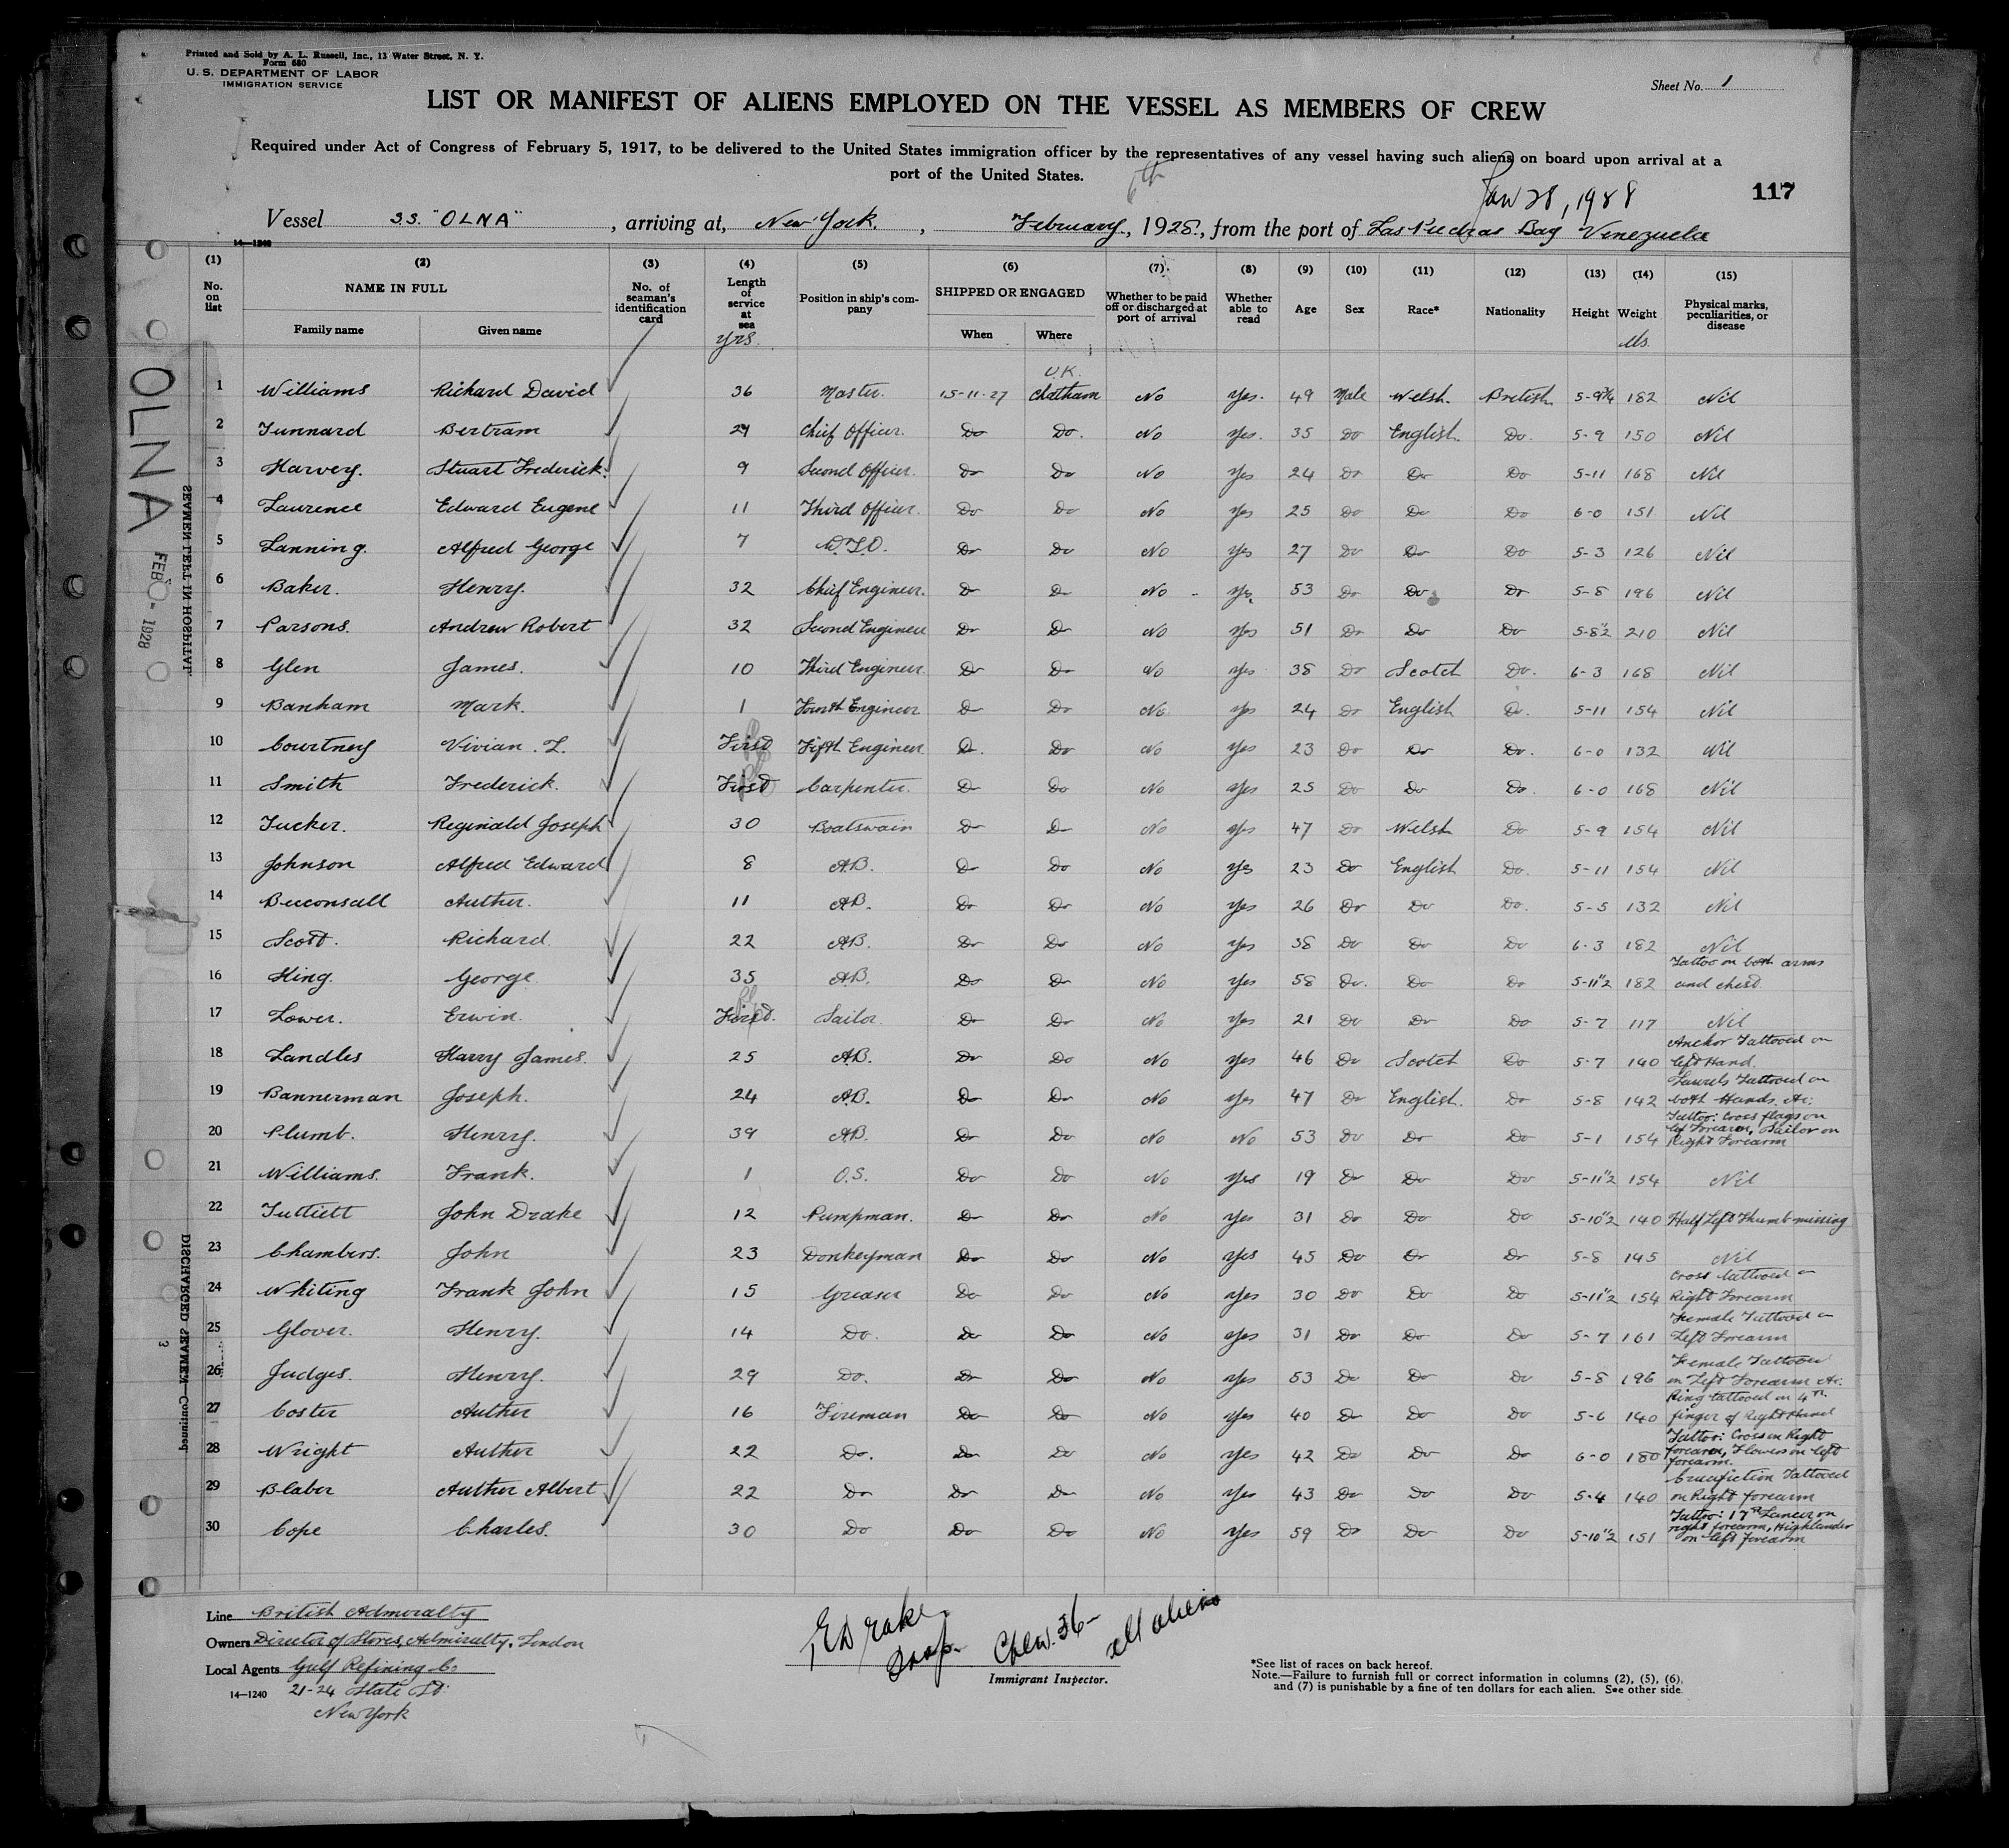 Printed and Sold by A. L. Russell, Inc., 13 Water Street, N. Y.
Form 680
U. S. DEPARTMENT OF LABOR
IMMIGRATION SERVICE
Sheet No. 1
LIST OR MANIFEST OF ALIENS EMPLOYED ON THE VESSEL AS MEMBERS OF CREW
Required under Act of Congress of February 5, 1917, to be delivered to the United States immigration officer by the representatives of any vessel having such aliens on board upon arrival at a
port of the United States.
6th
Jan 28, 1928
117
Vessel S.S. "OLNA", arriving at, New York, February, 1928, from the port of Las Piedras Bay Venezuela
14—1240
(1) (2) (3) (4) (5) (6) (7) (8) (9) (10) (11) (12) (13) (14) (15)
No. on list NAME IN FULL Family name Given name No. of seaman's identification card Length of service at sea yrs. Position in ship's company SHIPPED OR ENGAGED When Where Whether to be paid off or discharged at port of arrival Whether able to read Age Sex Race* Nationality Height Weight lbs. Physical marks, peculiarities, or disease
U.K.
1 Williams Richard David 36 Master. 15-11-27 Chatham No Yes. 49 Male Welsh. British 5-9¾ 182 Nil
2 Tunnard Bertram 21 Chief Officer. Do Do. No Yes. 35 Do English. Do. 5-9 150 Nil
3 Harvey. Stuart Frederick. 9 Second Officer. Do Do No Yes 24 Do Do Do 5-11 168 Nil
4 Laurence Edward Eugene 11 Third Officer. Do Do No Yes 25 Do Do Do 6-0 151 Nil
5 Lanning. Alfred George 7 W.T.O. Do Do No Yes 27 Do Do Do 5-3 126 Nil
6 Baker. Henry. 32 Chief Engineer. Do Do No - Yes 53 Do Do Do 5-8 196 Nil
7 Parsons. Andrew Robert 32 Second Engineer Do Do No Yes 51 Do Do Do 5-8½ 210 Nil
8 Glen James. 10 Third Engineer. Do Do No Yes 38 Do Scotch Do. 6-3 168 Nil
9 Banham Mark. 1 Fourth Engineer Do Do No. Yes 24 Do English Do. 5-11 154 Nil
10 Courtney Vivian. L. First Fifth Engineer Do. Do No Yes 23 Do Do Do. 6-0 132 Nil
11 Smith Frederick. First Carpenter. Do Do No Yes 25 Do Do Do. 6-0 168 Nil
12 Tucker. Reginald Joseph 30 Boatswain Do Do No Yes 47 Do Welsh Do 5-9 154 Nil
13 Johnson Alfred Edward 8 A.B. Do Do No Yes 23 Do English Do. 5-11 154 Nil
14 Buconsall Auther. 11 A.B. Do Do No Yes 26 Do Do Do. 5-5 132 Nil
15 Scott. Richard. 22 A.B. Do Do No Yes 38 Do Do Do 6-3 182 Nil
16 King. George. 35 A.B. Do Do No Yes 58 Do. Do Do 5-11½ 182 Tattoo on both arms and chest
17 Lower. Erwin. First. Sailor. Do Do No Yes 21 Do Do Do 5-7 117 Nil
18 Landles Harry James. 25 A.B. Do Do No Yes 46 Do Scotch Do 5-7 140 Anchor Tattooed on left Hand.
19 Bannerman Joseph. 24 A.B. Do Do No Yes 47 Do English. Do 5-8 142 Laurels Tattooed on both Hands. &c:
20 Plumb. Henry. 39 A.B. Do Do No No 53 Do Do Do 5-1 154 Tattoo: Cross flags on left Forearm, Sailor on Right Forearm
21 Williams. Frank. 1 O.S. Do Do No Yes 19 Do Do Do 5-11½ 154 Nil
22 Tuttiett John Drake 12 Pumpman. Do Do No Yes 31 Do Do Do 5-10½ 140 Half Left Thumb missing
23 Chambers. John 23 Donkeyman Do Do No Yes 45 Do Do Do 5-8 145 Nil
24 Whiting Frank John 15 Greaser Do Do No Yes 30 Do Do Do 5-11½ 154 Cross tattooed on Right Forearm
25 Glover. Henry. 14 Do. Do Do No Yes 31 Do Do Do 5-7 161 Female Tattooed on Left Forearm
26 Judges. Henry. 29 Do. Do Do No Yes 53 Do Do Do 5-8 196 Female Tattooed on Left Forearm &c:
27 Coster Auther 16 Fireman Do Do No Yes 40 Do Do Do 5-6 140 Ring tattooed on 4th. finger of Right Hand
28 Wright Auther 22 Do. Do Do No Yes 42 Do Do Do 6-0 180 Tattoo: Cross on Right forearm, Flowers on left forearm.
29 Blaber Auther Albert 22 Do Do Do No Yes 43 Do Do Do 5-4 140 Crucifiction Tattooed on Right forearm
30 Cope Charles. 30 Do Do Do No Yes 59 Do Do Do 5-10½ 151 Tattoo: 17th Lancer on right forearm, Highlander on left forearm
OLNA
FEB - 1928
SEAMEN LEFT IN HOSPITAL
DISCHARGED SEAMEN—Continued
3
Line British Admiralty
Owners Director of Stores, Admiralty, London
Local Agents Gulf Refining Co
14—1240 21-24 State St.
New York
Drake
Insp. Crew. 36- All aliens
Immigrant Inspector.
*See list of races on back hereof.
Note.—Failure to furnish full or correct information in columns (2), (5), (6),
and (7) is punishable by a fine of ten dollars for each alien. See other side